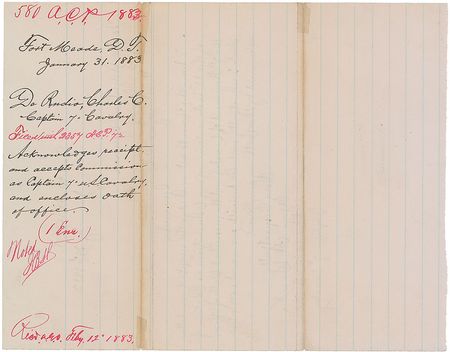 580 A.C.P. 1883.
Fort Meade, D.T.
January 31. 1883
De Rudio, Charles C.
Captain 7" Cavalry.
Filed with 2357 ACP. 72
Acknowledges receipt
and accepts Commission
as Captain 7" U.S. Cavalry,
and encloses oath
of office.
1 Enc.
Noted
Feby. 12" 1883.